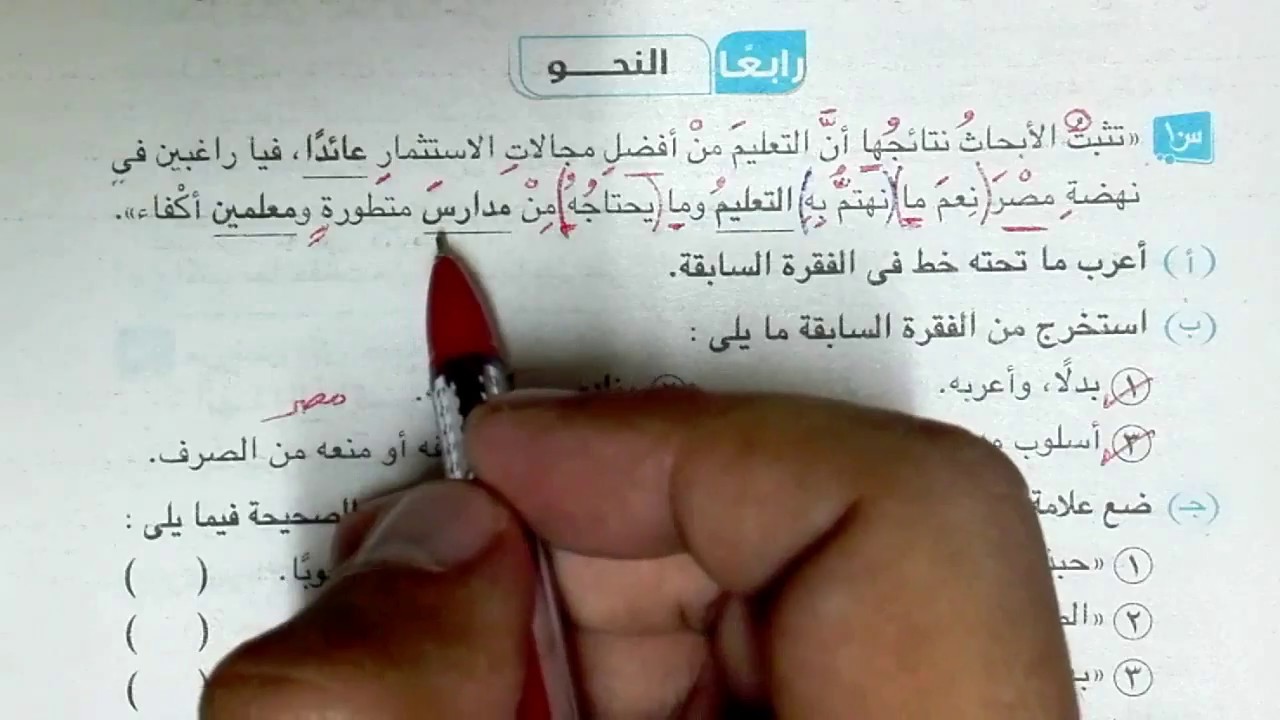 رابعًا النحـــو
س١ «تثبتُ الأبحاثُ نتائجُها أنَّ التعليمَ منْ أفضلِ مجالاتِ الاستثمارِ عائدًا، فيا راغبين في
نهضةِ مصْرَ (نِعمَ ما) (نهتمُّ بِهِ) التعليمُ وما (يحتاجُهُ) مِنْ مدارسَ متطورةٍ ومعلمين أكْفاء».
(أ) أعرب ما تحته خط فى الفقرة السابقة.
(ب) استخرج من الفقرة السابقة ما يلى :
١ بدلًا، وأعربه.
مصر
٣ أسلوب أو منعه من الصرف.
(جـ) ضع علامة الصحيحة فيما يلى :
١ ( )
٢ ( )
٣ (